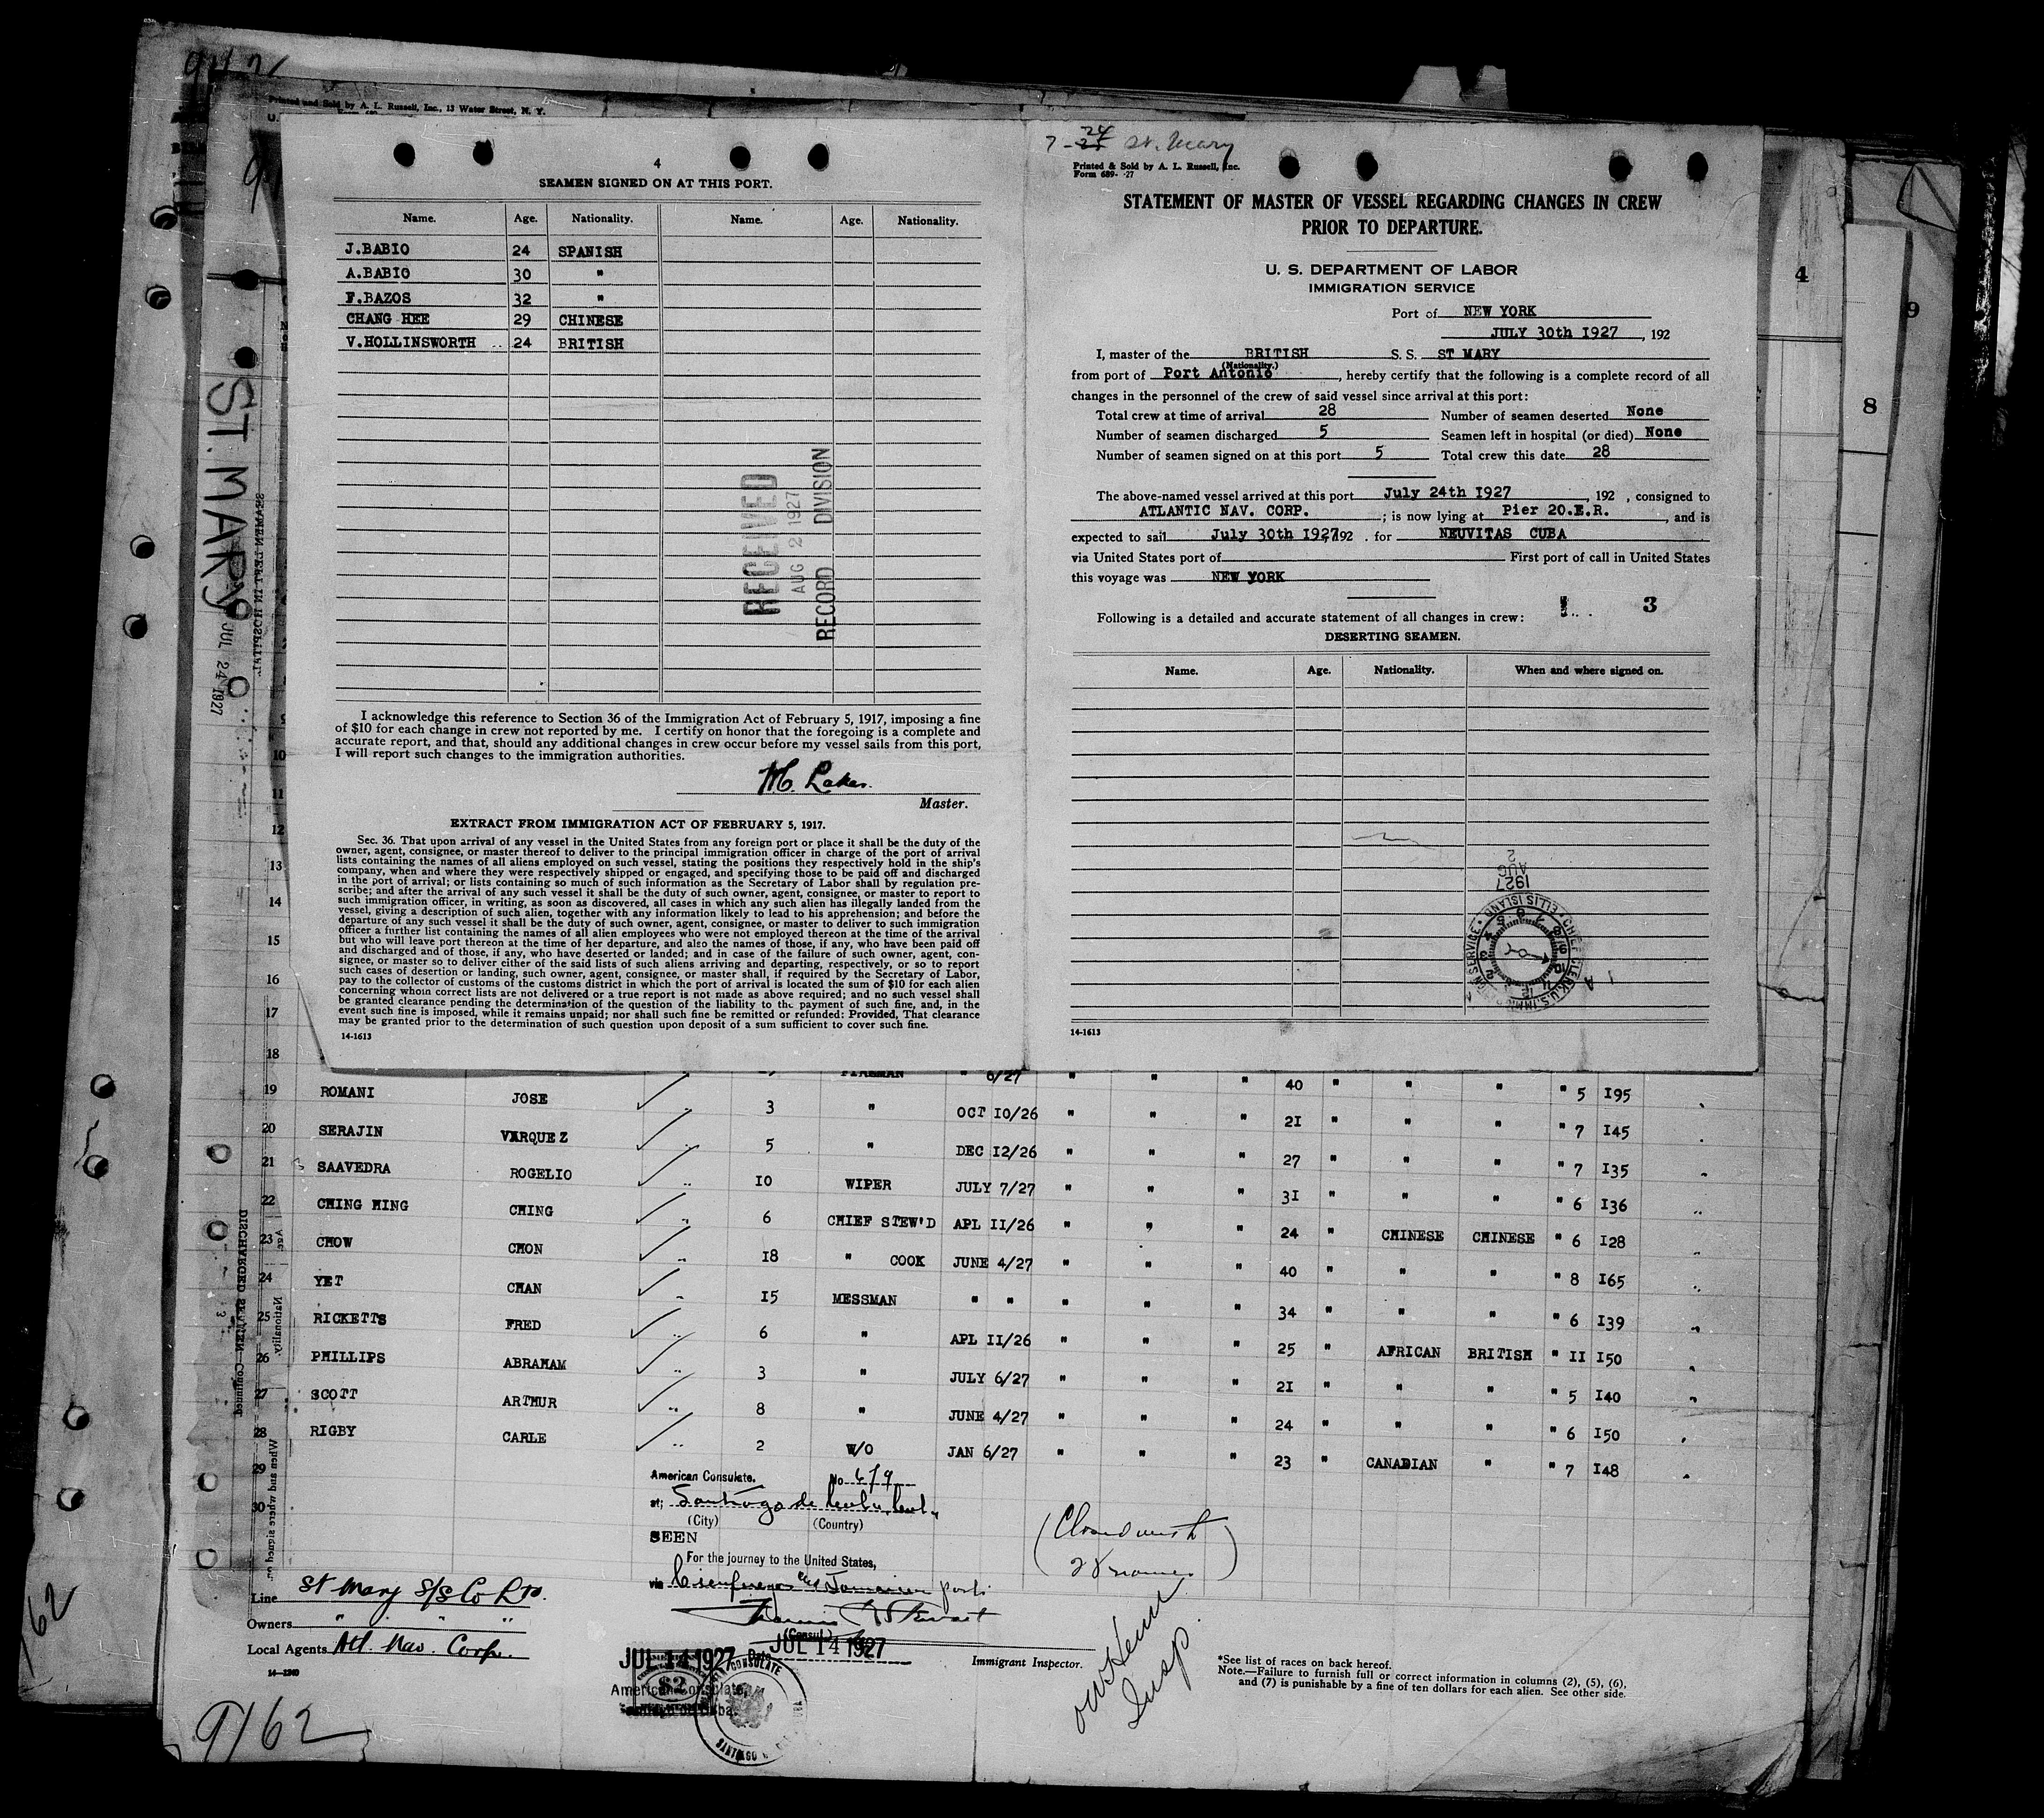 9162
Printed and Sold by A. L. Russell, Inc., 13 Water Street, N. Y.
ST. MARY
JUL 24 1927
4
SEAMEN SIGNED ON AT THIS PORT.
Name. Age. Nationality. Name. Age. Nationality.
J.BABIO 24 SPANISH
A.BABIO 30 "
F.BAZOS 32 "
CHANG HEE 29 CHINESE
V.HOLLINSWORTH 24 BRITISH
RECEIVED
AUG 2 1927
RECORD DIVISION
I acknowledge this reference to Section 36 of the Immigration Act of February 5, 1917, imposing a fine
of $10 for each change in crew not reported by me. I certify on honor that the foregoing is a complete and
accurate report, and that, should any additional changes in crew occur before my vessel sails from this port,
I will report such changes to the immigration authorities.
Master.
EXTRACT FROM IMMIGRATION ACT OF FEBRUARY 5, 1917.
Sec. 36. That upon arrival of any vessel in the United States from any foreign port or place it shall be the duty of the
owner, agent, consignee, or master thereof to deliver to the principal immigration officer in charge of the port of arrival
lists containing the names of all aliens employed on such vessel, stating the positions they respectively hold in the ship's
company, when and where they were respectively shipped or engaged, and specifying those to be paid off and discharged
in the port of arrival; or lists containing so much of such information as the Secretary of Labor shall by regulation pre-
scribe; and after the arrival of any such vessel it shall be the duty of such owner, agent, consignee, or master to report to
such immigration officer, in writing, as soon as discovered, all cases in which any such alien has illegally landed from the
vessel, giving a description of such alien, together with any information likely to lead to his apprehension; and before the
departure of any such vessel it shall be the duty of such owner, agent, consignee, or master to deliver to such immigration
officer a further list containing the names of all alien employees who were not employed thereon at the time of the arrival
but who will leave port thereon at the time of her departure, and also the names of those, if any, who have been paid off
and discharged and of those, if any, who have deserted or landed; and in case of the failure of such owner, agent, con-
signee, or master so to deliver either of the said lists of such aliens arriving and departing, respectively, or so to report
such cases of desertion or landing, such owner, agent, consignee, or master shall, if required by the Secretary of Labor,
pay to the collector of customs of the customs district in which the port of arrival is located the sum of $10 for each alien
concerning whom correct lists are not delivered or a true report is not made as above required; and no such vessel shall
be granted clearance pending the determination of the question of the liability to the payment of such fine, and, in the
event such fine is imposed, while it remains unpaid; nor shall such fine be remitted or refunded: Provided, That clearance
may be granted prior to the determination of such question upon deposit of a sum sufficient to cover such fine.
14-1613
7-24 St. Mary
Printed & Sold by A. L. Russell, Inc.
Form 689- -27
STATEMENT OF MASTER OF VESSEL REGARDING CHANGES IN CREW
PRIOR TO DEPARTURE.
U. S. DEPARTMENT OF LABOR
IMMIGRATION SERVICE
Port of NEW YORK
JULY 30th 1927, 192
I, master of the BRITISH S. S. ST MARY
(Nationality.)
from port of Port Antonio, hereby certify that the following is a complete record of all
changes in the personnel of the crew of said vessel since arrival at this port:
Total crew at time of arrival 28 Number of seamen deserted None
Number of seamen discharged 5 Seamen left in hospital (or died) None
Number of seamen signed on at this port 5 Total crew this date 28
The above-named vessel arrived at this port July 24th 1927, 192 , consigned to
ATLANTIC NAV. CORP. ; is now lying at Pier 20.E.R. , and is
expected to sail July 30th 1927, 192 . for NEUVITAS CUBA
via United States port of First port of call in United States
this voyage was NEW YORK
3
Following is a detailed and accurate statement of all changes in crew:
DESERTING SEAMEN.
Name. Age. Nationality. When and where signed on.
AUG 2
1927
CHIEF CLERK, U.S. IMMIGRATION SERVICE
ELLIS ISLAND
14-1613
4
9
8
10
11
12
13
14
15
16
17
18
FIREMAN " 6/27 " " " 40 " " " " 5 195
19 ROMANI JOSE 3 " OCT 10/26 " " " 21 " " " " 7 145
20 SERAJIN VARQUEZ 5 " DEC 12/26 " " " 27 " " " " 7 135
21 SAAVEDRA ROGELIO 10 WIPER JULY 7/27 " " " 31 " " " " 6 136
22 CHING HING CHING 6 CHIEF STEW'D APL 11/26 " " " 24 " CHINESE CHINESE " 6 128
23 CHOW CHON 18 " COOK JUNE 4/27 " " " 40 " " " " 8 165
24 YET CHAN 15 MESSMAN " " " " " 34 " " " " 6 139
25 RICKETTS FRED 6 " APL 11/26 " " " 25 " AFRICAN BRITISH " 11 150
26 PHILLIPS ABRAHAM 3 " JULY 6/27 " " " 21 " " " " 5 140
27 SCOTT ARTHUR 8 " JUNE 4/27 " " " 24 " " " " 6 150
28 RIGBY CARLE 2 W/O JAN 6/27 " " " 23 " CANADIAN " " 7 148
29
30
DISCHARGED SEAMEN—Continued
Age
Nationality.
When and where signed on.
SEAMEN LEFT IN HOSPITAL
American Consulate. No 679
at; Santiago de Cuba, Cuba
(City) (Country)
SEEN
For the journey to the United States,
via Cienfuegos and Jamaican ports
(Consul)
JUL 14 1927 Date JUL 14 1927
American Consulate,
Santiago de Cuba.
$2
(Closed with
28 names)
Insp.
Line St Mary S/S Co Ltd.
Owners " " "
Local Agents Atl. Nav. Corp.
14-1240
Immigrant Inspector.
*See list of races on back hereof.
Note.—Failure to furnish full or correct information in columns (2), (5), (6),
and (7) is punishable by a fine of ten dollars for each alien. See other side.
9162